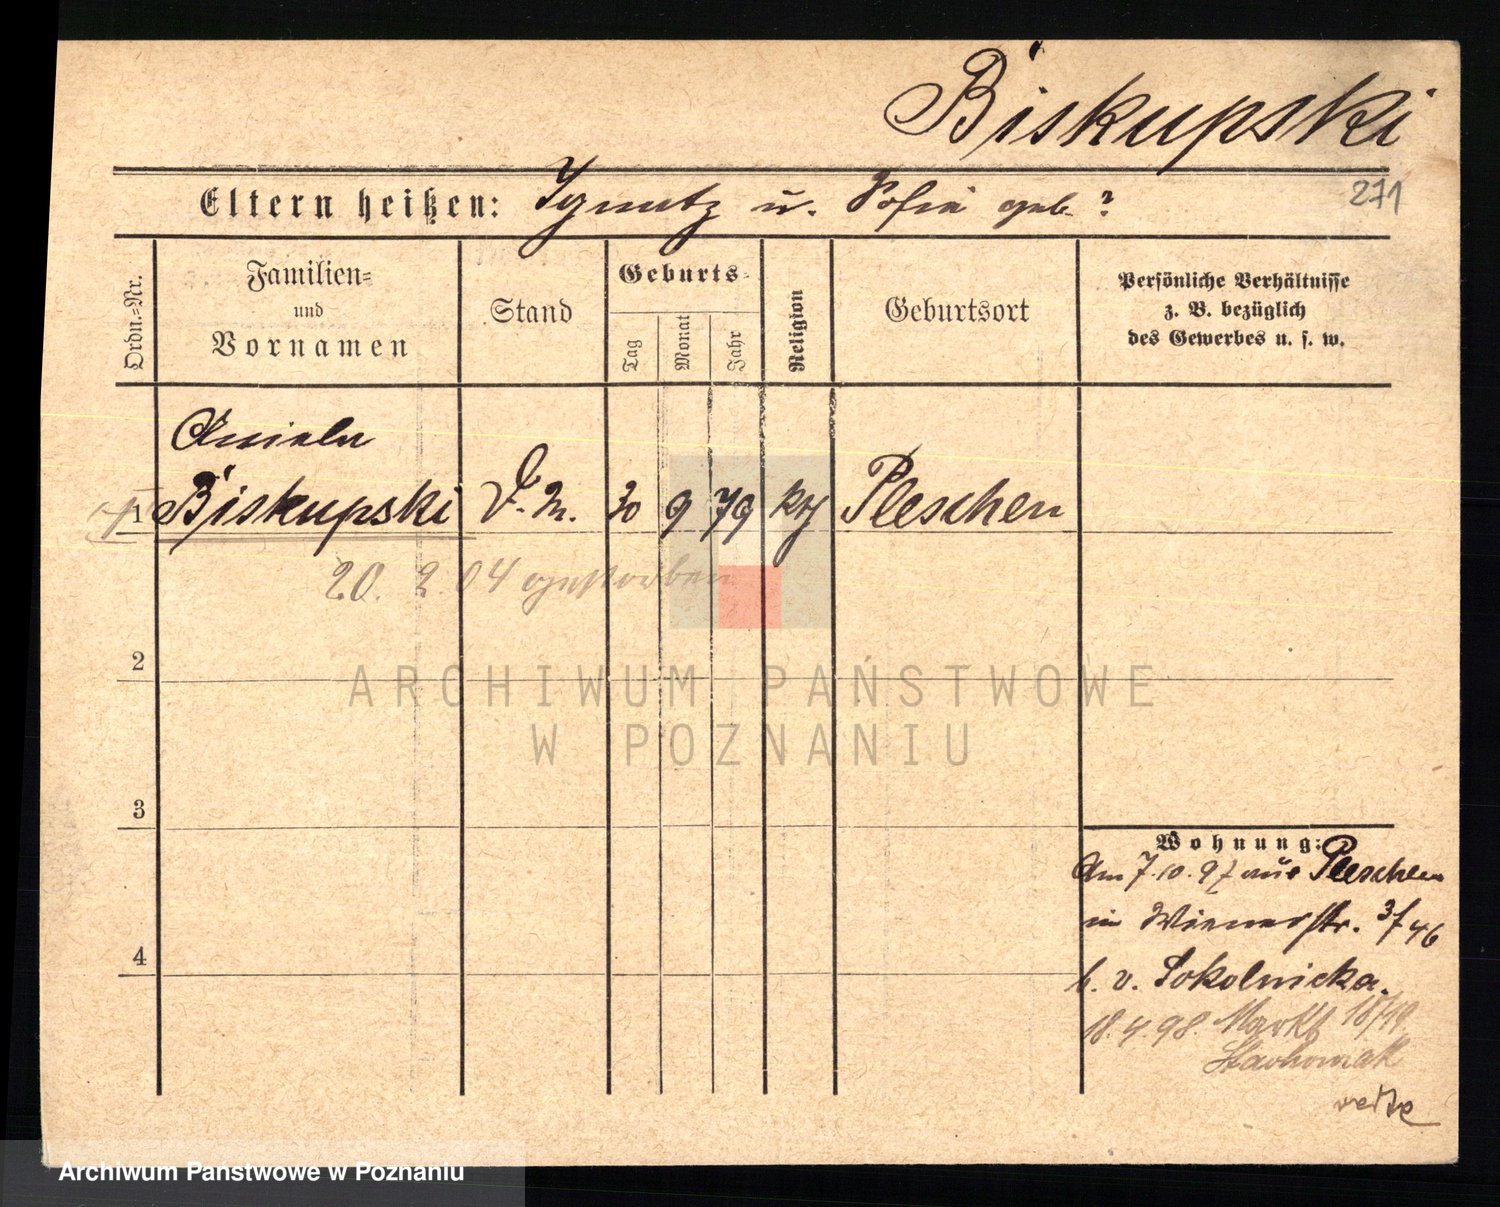 Biskupski
Eltern heißen: Ignatz u. Sofia geb. ?
271
Ordn.=Nr.
Familien=
und
Vornamen
Stand
Geburts=
Tag
Monat
Jahr
Religion
Geburtsort
Persönliche Verhältnisse
z. B. bezüglich
des Gewerbes u. s. w.
Aniela
1 Biskupski D. M. 30 9 79 kth Pleschen
20. 2. 04 gestorben
2
ARCHIWUM PAŃSTWOWE
W POZNANIU
3
Wohnung:
Am 7.10.97 aus Pleschen
in Wienerstr. 3/46
b. v. Sokolnicka.
18.4.98. Markt 18/19
Stachowiak
Archiwum Państwowe w Poznaniu
4